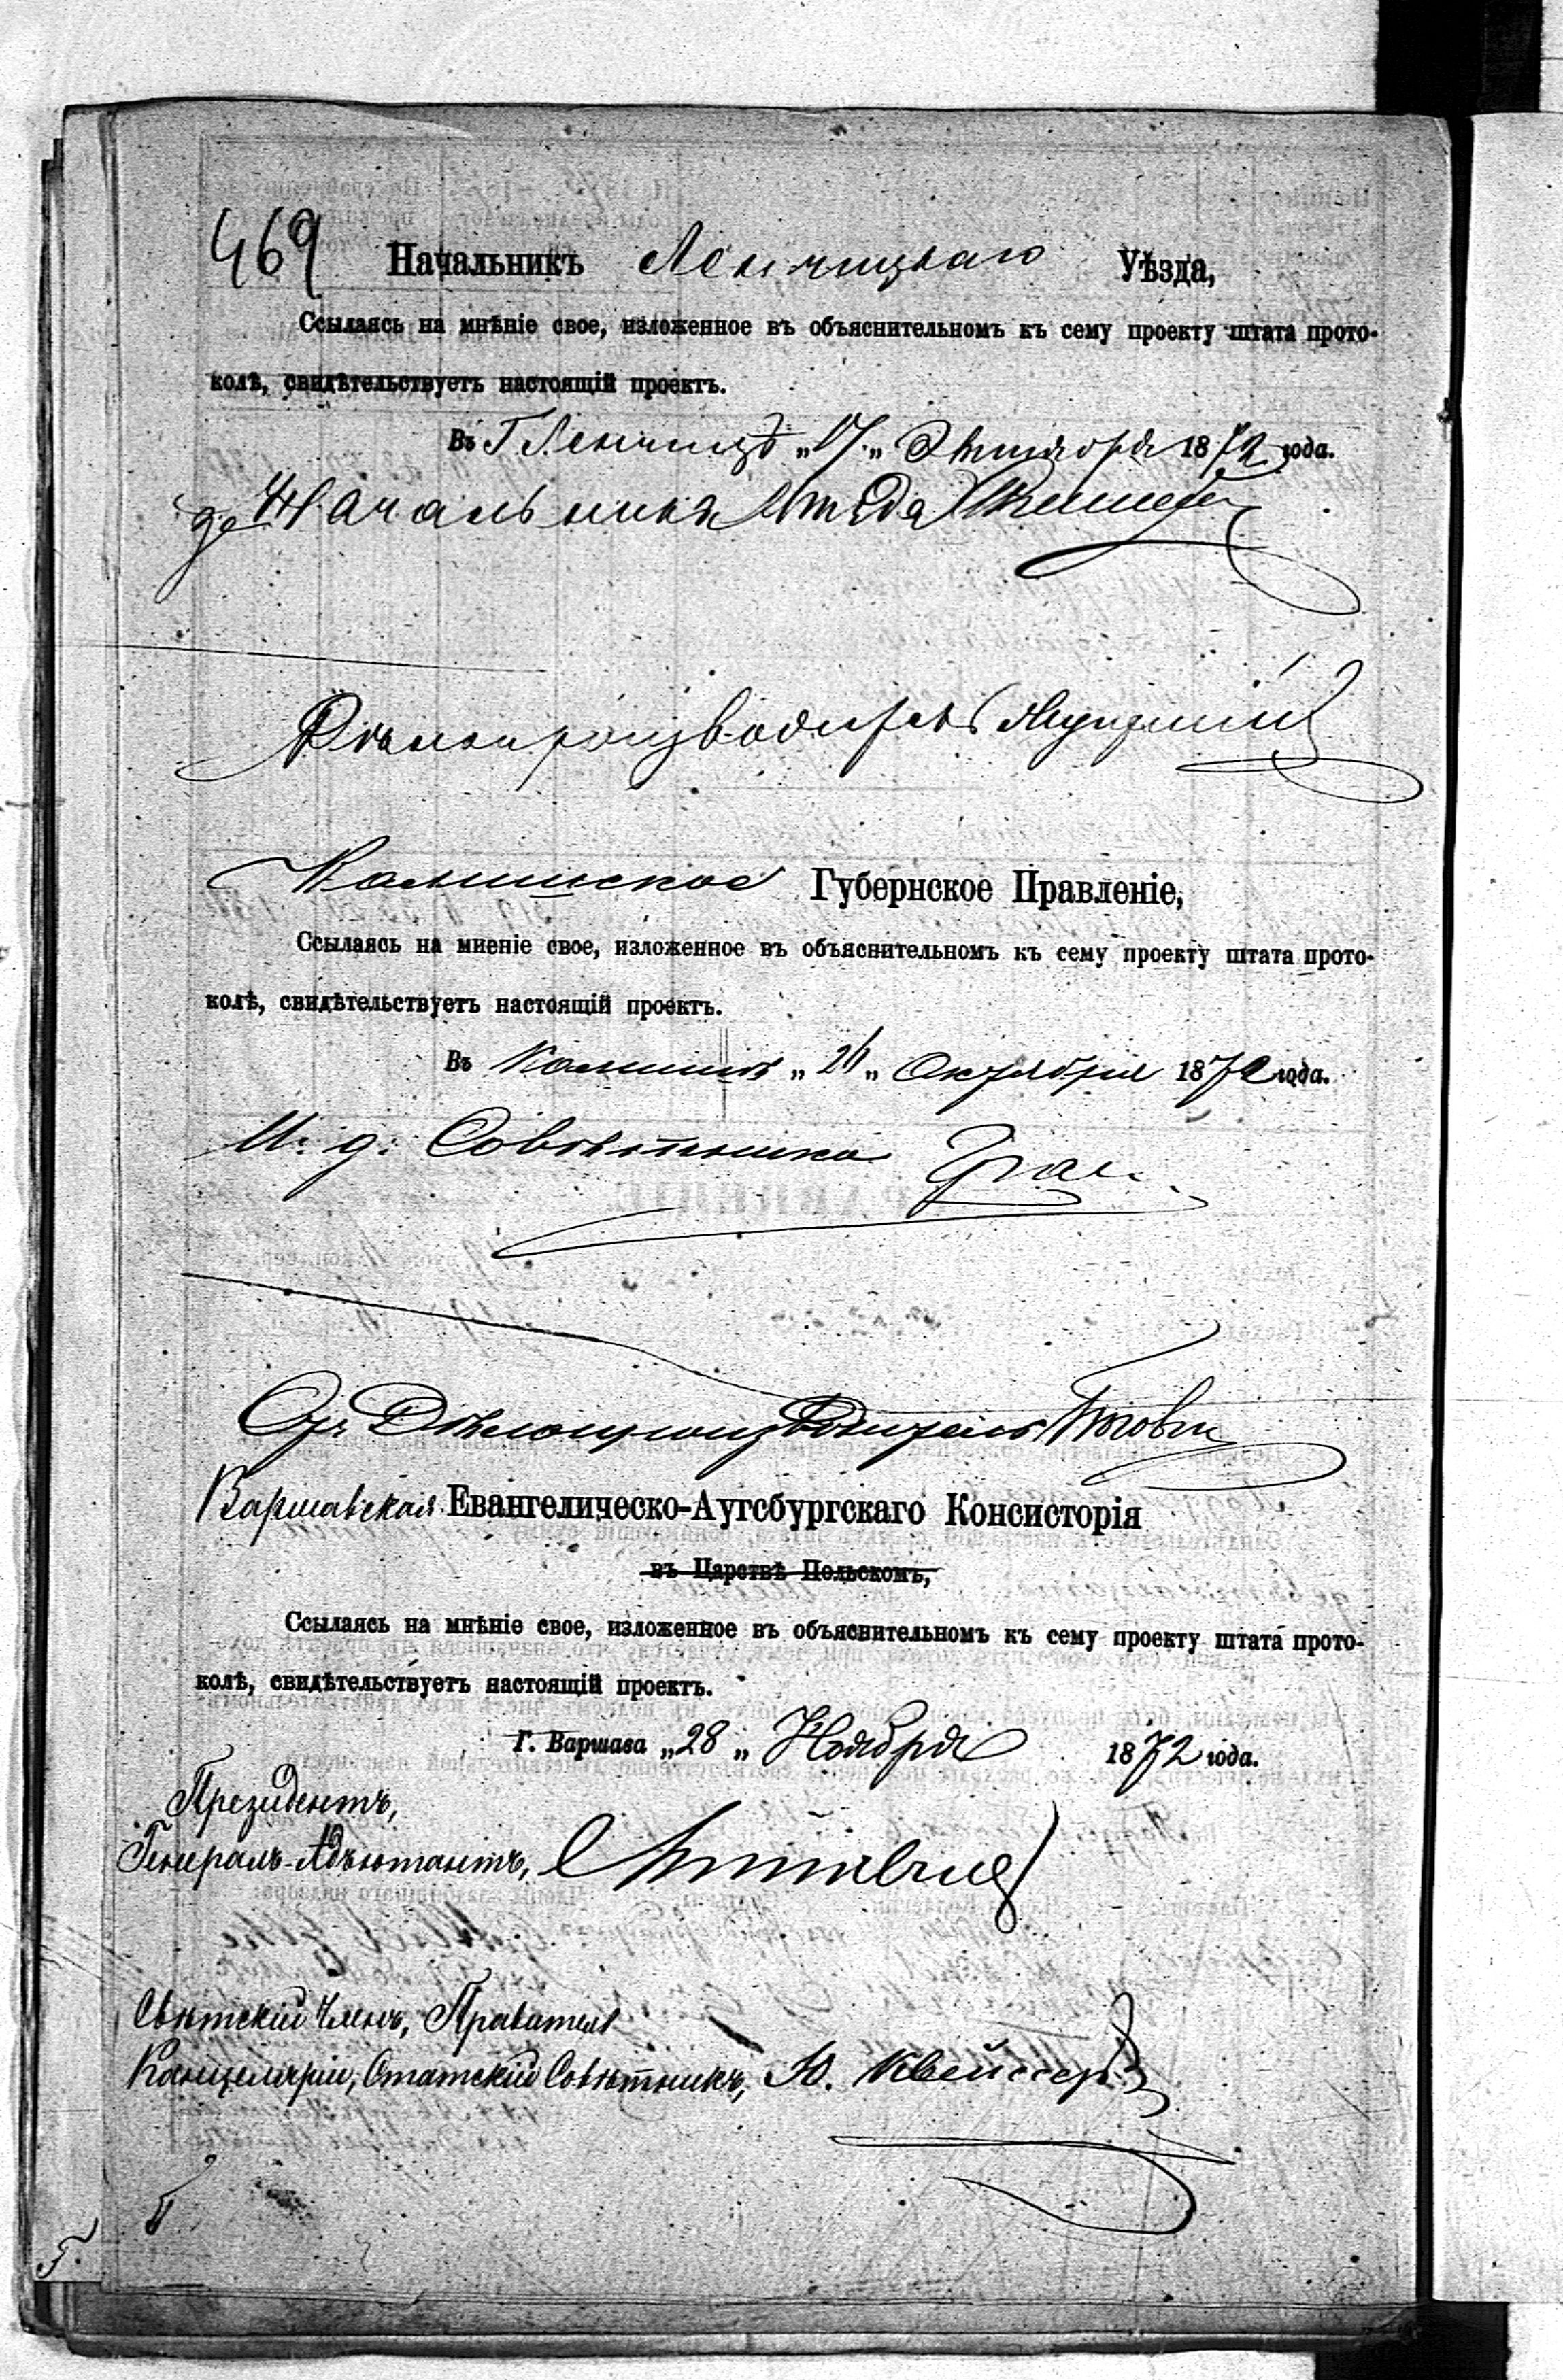 469
Начальникъ Ленчицкаго Уѣзда,
Ссылаясь на мнѣніе свое, изложенное въ объяснительномъ къ сему проекту штата прото-
колѣ, свидѣтельствуетъ настоящій проектъ.
Въ Г Ленчицѣ „17„ 1872 года.
Начальника
Дѣлопроизводитель
Калишское Губернское Правленіе,
Ссылаясь на мненіе свое, изложенное въ объяснительномъ къ сему проекту штата прото-
колѣ, свидѣтельствуетъ настоящій проектъ.
Въ Калишѣ „ „ Октября 1872 года.
И. д. Совѣтника
Дѣлопроизводитель
Варшавская Евангелическо-Аугсбургскаго Консисторія
въ Царствѣ Польскомъ,
Ссылаясь на мнѣніе свое, изложенное въ объяснительномъ къ сему проекту штата прото-
колѣ, свидѣтельствуетъ настоящій проектъ.
Г. Варшава „28„ Ноября 1872 года.
Президентъ,
Генералъ-Адъютантъ,
Свѣтскій Членъ, Правитель
Канцеляріи, Статскій Совѣтникъ, Ю.